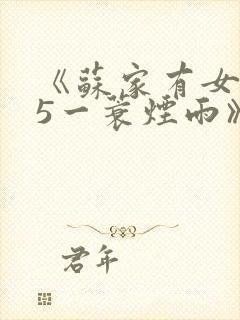 《蘇家有女
5一蓑煙雨》
君年